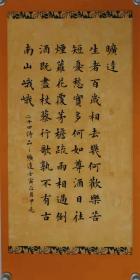 曠達
生者百歲相去幾何歡樂苦
短憂愁實多何如尊酒日往
煙蘿花覆茅檐疏雨相過倒
酒既盡杖藜行歌孰不有古
南山峨峨
二十四詩品之曠達